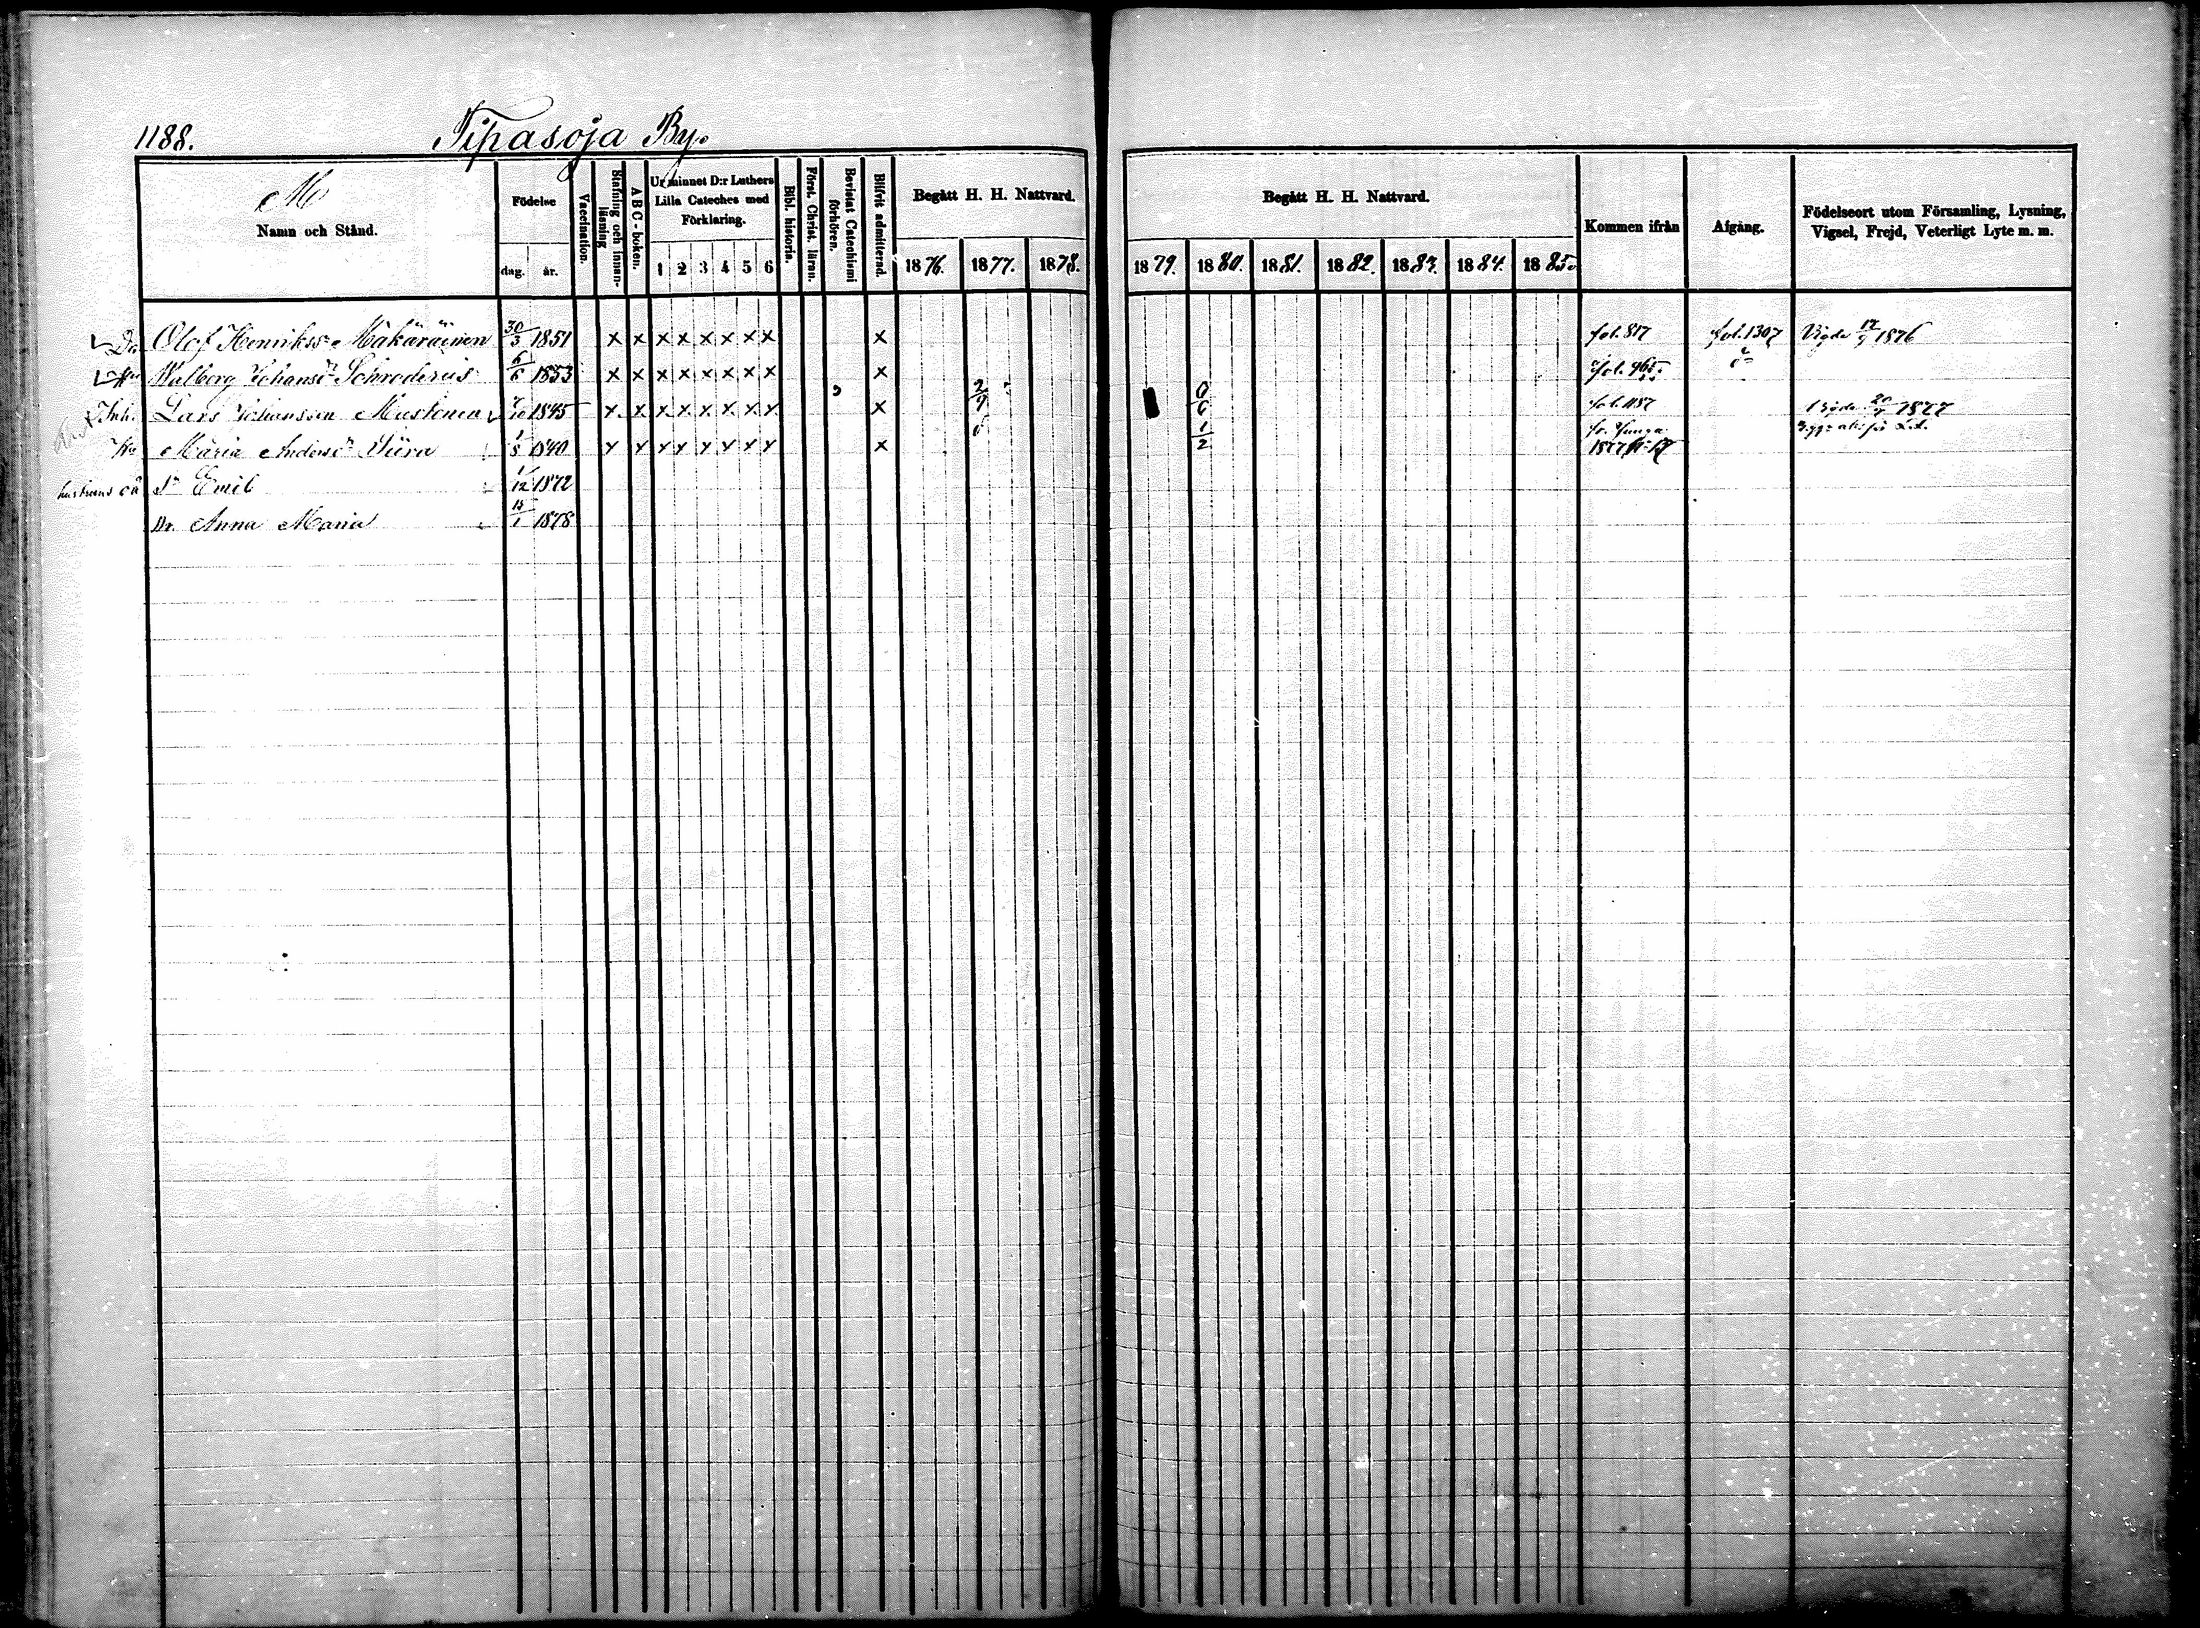 1188. Tipasoja By.
M
Namn och Stånd.
Födelse
dag. år.
Vaccination.
Stafning och innan-läsning
ABC-boken.
Ur minnet D:r Luthers Lilla Cateches med Förklaring.
1 2 3 4 5 6
Bibl. historia.
Först. Christ. läran.
Bevistat Catechismi förhören.
Blifvit admitterad.
Begått H. H. Nattvard.
1876. 1877. 1878.
Begått H. H. Nattvard.
1879. 1880. 1881. 1882. 1883. 1884. 1885.
Kommen ifrån
Afgång.
Födelseort utom Församling, Lysning, Vigsel, Frejd, Veterligt Lyte m. m.
Dr. Olof Henrikss. Mäkäräinen 30/3 1851 x x x x x x x x x fol. 817 fol. 1307 Vigde 17/9 1876
Hu Walborg Johansd:r Schroderus 6/6 1853 x x x x x x x x x fol. 965.
Inh. Lars Johansson Mustonen 1845 x x x x x x x x x 2/9 6/6 fol. 1187 Vigde 20/7 1877
Hu Maria Andersd:r 1/8 1840 x x x x x x x x x 1/2 1877
hustruns oä S:n Emil 1/12 1872
Dr. Anna Maria 15/1 1878